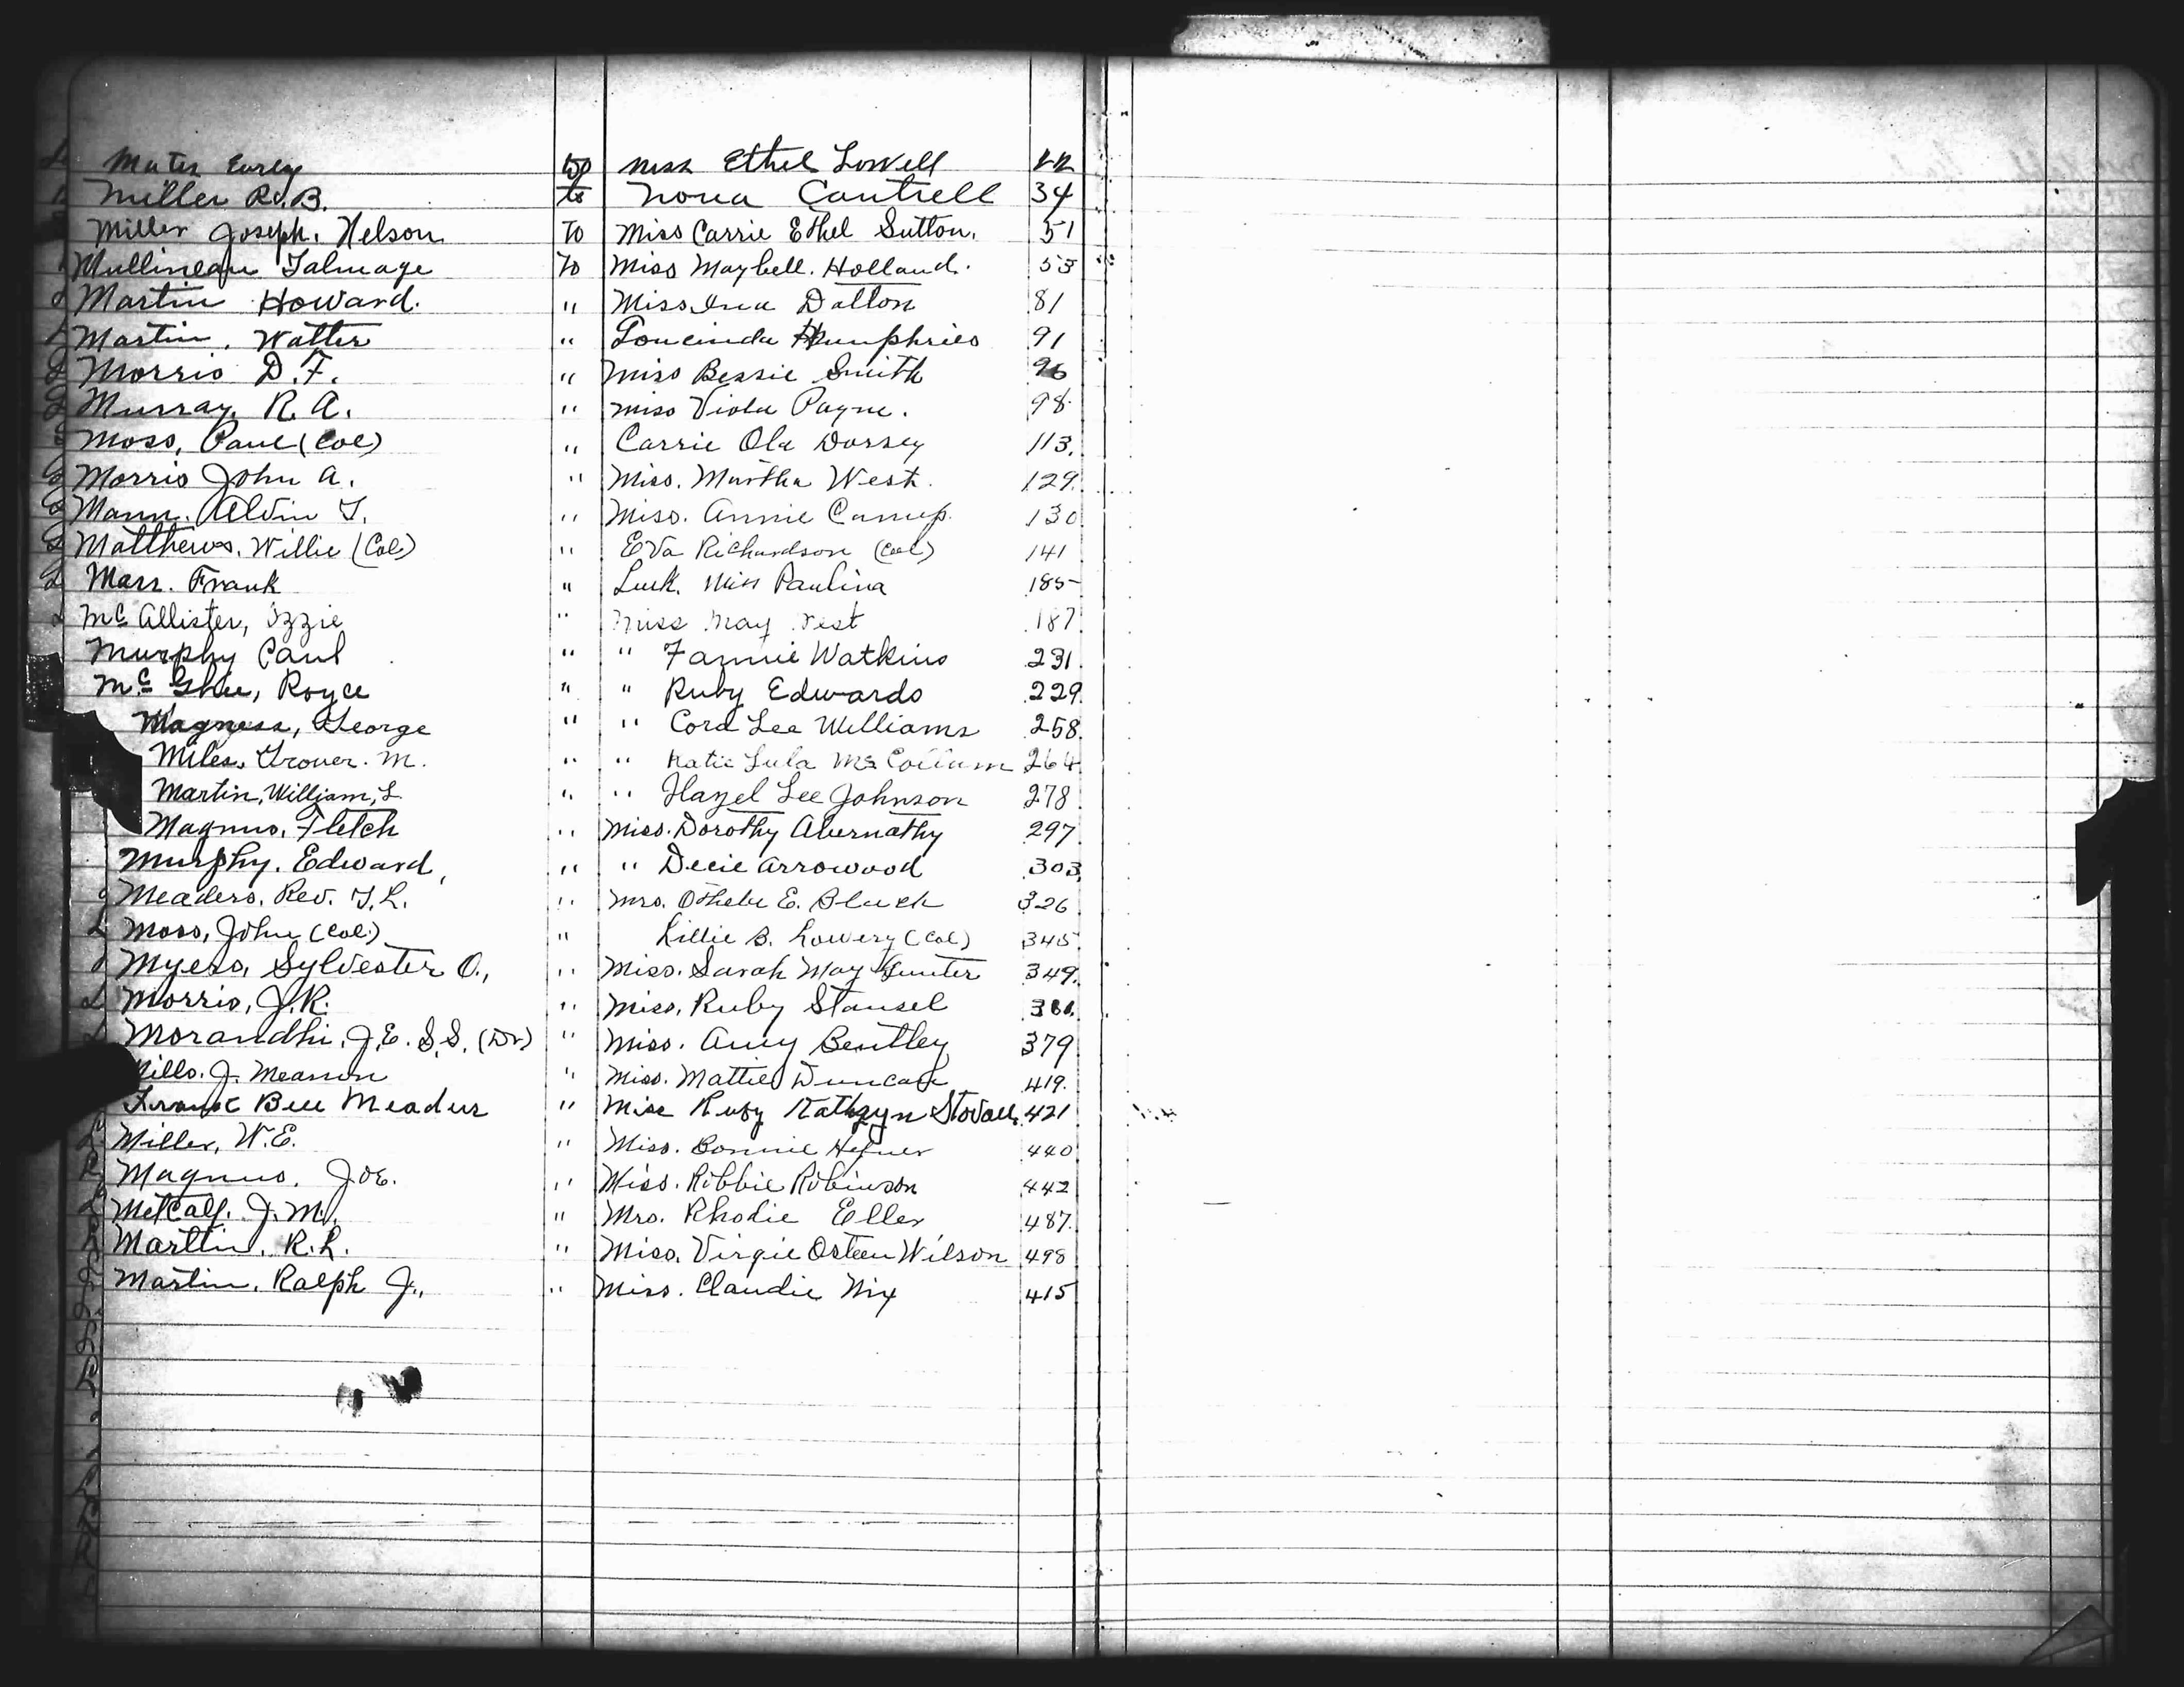 Ethel Lowell
Miller R.B. to Nona Cantrell 34
Miller Joseph. Nelson To Miss Carrie Ethel Sutton. 51
Talmage To Miss Maybell. Holland. 53
Martin Howard. " Miss Dalton 81
Martin. Walter " Loucinda Humphries 91
Morris D.F. " Miss Bessie Smith 96
Murray, R.A. " Miss Viola Payne. 98
Moss, Paul (Col) " Carrie Ola Dorsey 113.
Morris John A. " Miss. Martha West. 129.
Mann. Alvin T. " Miss. Annie Camp. 130
Matthews. Willie (Col) " Eva Richardson (Col) 141
Marr. Frank " Luck. Miss Paulina 185
McAllister, Ozzie " Miss May 187
Murphy Paul " " Fannie Watkins 231.
McGhee, Royce " " Ruby Edwards 229.
Magness, George " " Cora Lee Williams 258.
Miles, Grover. M. " " Katie Lula McCollum 264
Martin, William, L " " Hazel Lee Johnson 278
Magnus, Fletch " Miss. Dorothy Abernathy 297
Murphy. Edward, " " Decie Arrowood 303.
Meaders. Rev. T.L. " Mrs. E. Black 326
Moss, John (Col) " Lillie B. Lowery (Col) 345
Myers, Sylvester O., " Miss. Sarah May Gunter 349.
Morris, J.R. " Miss. Ruby Stansel
Morandhi. J.E. S.S. (Dr) " Miss. Amy Bentley 379
J. " Miss. Mattie Duncan 419.
Frank Bell Meadus " Miss Ruby Kathryn Stovall. 421
Miller, W.E. " Miss. Bonnie Hefner 440
Magnus. Joe. " Miss. Ribbie Robinson 442
Metcalf. J.M. " Mrs. Rhodie Eller 487.
Marttin. R.L. " Miss. Virgie Osteen Wilson 498
Martin. Ralph J., " Miss. Claudie Nix 415